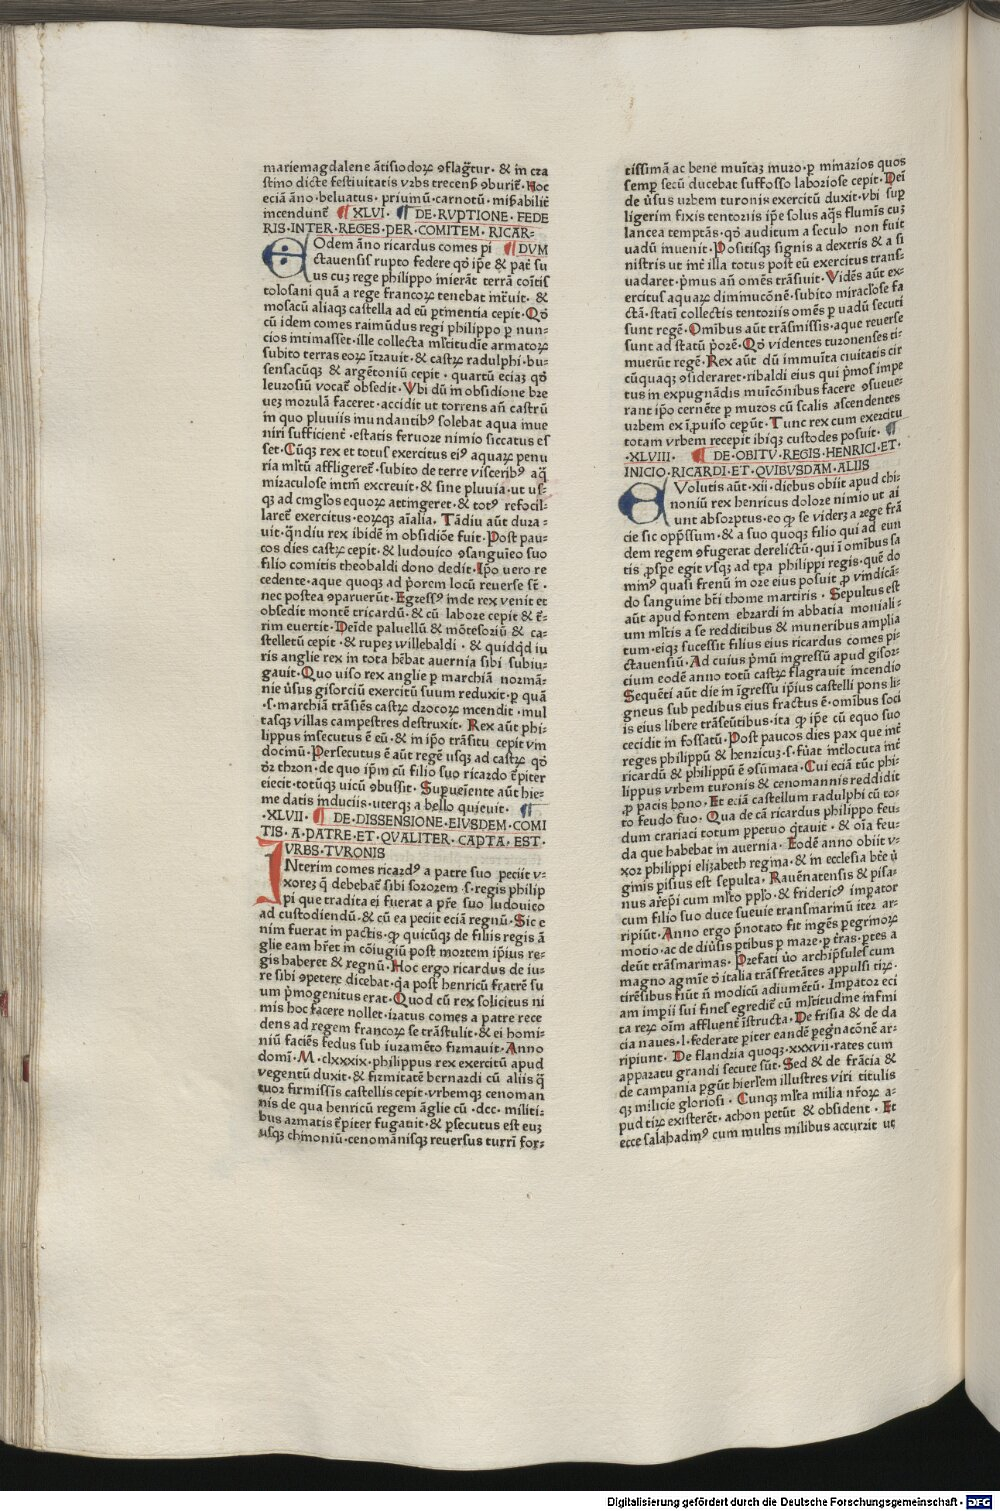 mariemagdalene ãtisiodoꝝ ꝯflag̃tur · & in cra
stino dicte festiuitatis vrbs trecenſ̃ ꝯburiť · Hoc
eciã ãno · beluatus · priuinũ · carnotũ · mirabiliť
incendunť XLVI · DE · RVPTIONE · FEDE
RIS · INTER · REGES · PER · COMITEM · RICAR-
Odem ãno ricardus comes pi DVM
ctauensis rupto federe qđ ip̃e & paẗ su
us cuʒ rege philippo inierãt terrã coĩtis
tolosani quã a rege francoꝝ tenebat intͬuit · &
mosacũ aliaqʒ castella ad eũ ꝑtinentia cepit · Qđ
cũ idem comes raimũdus regi philippo ꝑ nun-
cios intimasset · ille collecta mĩtitudĩe armatoꝝ
subito terras eoꝝ ĩtrauit · & castꝝ radulphi · bu-
sensacũqʒ & argẽtoniũ cepit · quartũ eciaʒ qđ
leuzosiũ vocať obsedit · Vbi dũ in obsidione bre
ueʒ morulã faceret · accidit ut torrens añ castrũ
in quo pluuiis inundantibꝰ solebat aqua inue
niri sufficienť · estatis feruore nimio siccatus es
set · Cũqʒ rex et totus exercitus eiꝰ aquaꝝ penu
ria mĩtũ affligereť · subito de terre visceribꝰ aq̃
miraculose intm̃ excreuit · & sine pluuia · ut us-
qʒ ad cingl̃os equoꝝ attingeret · & totꝰ refocil-
lareť exercitus · eoꝝqʒ aĩalia · Tãdiu aũt dura-
uit · q̃ndiu rex ibidẽ in obsidiõe fuit · Post pau-
cos dies castꝝ cepit · & ludouico ꝯsanguĩeo suo
filio comitis theobaldi dono dedit · Ip̃o uero re
cedente · aque quoqʒ ad p̃orem locũ reuerse sť ·
nec postea ꝯparuerũt · Egressꝰ inde rex venit et
obsedit montẽ tricardũ · & cũ labore cepit & ť-
rim euertit · Deĩde paluellũ & mõtesoriũ & ca-
stelletũ cepit · & rupeʒ willebaldi · & quidq̃d iu
ris anglie rex in tota hẽbat auernia sibi subiu-
gauit · Quo uiso rex anglie ꝑ marchiã normã-
nie ũsus gisorciũ exercitũ suum reduxit · ꝑ quã
· s · marchiã trãsiẽs castꝝ drocoꝝ incendit · mul
tasqʒ villas campestres destruxit · Rex aũt phi-
lippus insecutus ẽ eũ · & in ip̃o trãsitu cepit vin
docinũ · Persecutus ẽ aũt regẽ usqʒ ad castꝝ qđ
đr thron · de quo ip̃m cũ filio suo ricardo ťpiter
eiecit · totũqʒ uicũ ꝯbussit · Supueĩente aũt hie-
me datis induciis · uterqʒ a bello quieuit ·
· XLVII · DE · DISSENSIONE · EIVSDEM · COMI
TIS · A · PATRE · ET · QVALITER · CAPTA · EST ·
VRBS · TVRONIS
INterim comes ricardꝰ a patre suo peciit v-
xoreʒ q̃ debebať sibi sororem · s · regis philip
pi que tradita ei fuerat a p̃re suo ludouico
ad custodiendũ · & cũ ea peciit eciã regnũ · Sic e
nim fuerat in pactis · ꝙ quicũqʒ de filiis regis ã
glie eam hr̃et in cõiugiũ post mortem ip̃ius re-
gis haberet & regnũ · Hoc ergo ricardus de iu-
re sibi ꝯpetere dicebat · q̃a post henricũ fratrẽ su
um p̃mogenitus erat · Quod cũ rex solicitus ni
mis hoc facere nollet · iratus comes a patre rece
dens ad regem francoꝝ se trãstulit · & ei homi-
niũ faciẽs fedus sub iuramẽto firmauit · Anno
domĩ · M · clxxxix · philippus rex exercitũ apud
vegentũ duxit · & firmitatẽ bernardi cũ aliis q̃
tuor firmissĩs castellis cepit · vrbemqʒ cenoman
nis de qua henricũ regem ãglie cũ · dcc · militi-
bus armatis ťpiter fugauit · & ꝑsecutus est euʒ
usqʒ chinoniũ · cenomãnisqʒ reuersus turrĩ for-
tissimã ac bene muĩtaʒ muro · ꝑ minarios quos
semꝑ secũ ducebat suffosso laboriose cepit · Deĩ
de ũsus urbem turonis exercitũ duxit · vbi suꝑ
ligerim fixis tentoriis ip̃e solus aq̃s flumĩs cuʒ
lancea temptãs · qđ auditum a seculo non fuit
uadũ inuenit · Positisqʒ signis a dextris & a si
nistris ut inť illa totus post eũ exercitus trans-
uadaret · p̃mus añ omẽs trãsiuit · Vidẽs aũt ex-
ercitus aquaꝝ diminucõnẽ · subito miracl̃ose fa
ctã · statĩ collectis tentoriis omẽs ꝑ uadũ secuti
sunt regẽ · Omĩbus aũt trãsmissis · aque reuerse
sunt ad statũ p̃orẽ · Qđ videntes turonenses ti-
muerũt regẽ · Rex aũt dũ immuĩta ciuitatis cir
cũquaqʒ ꝯsideraret · ribaldi eius qui p̃mos impe
tus in expugnãdis muĩcõnibus facere ꝯsueue-
rant ip̃o cernẽte ꝑ muros cũ scalis ascendentes
urbem ex ĩꝓuiso ceperũt · Tunc rex cum exercitu
totam vrbem recepit ibiqʒ custodes posuit ·
· XLVIII · DE · OBITV · REGIS · HENRICI · ET ·
INICIO · RICARDI · ET · QVIBVSDAM · ALIIS
EVolutis aũt · xii · diebus obiit apud chi-
noniũ rex henricus dolore nimio ut ai
unt absorptus · eo ꝙ se viderʒ a rege frã
cie sic opp̃ssum · & a suo quoqʒ filio qui ad eun
dem regem ꝯfugerat derelictũ · qui ĩ omĩbus sa
tis ꝓsꝑe egit vsqʒ ad tp̃a philippi regis · quẽ do
minꝰ quasi frenũ in ore eius posuit ꝓ vindicã-
do sanguine bťi thome martiris · Sepultus est
aũt apud fontem ebrardi in abbatia monial-
um mĩtis a se redditibus & muneribus amplia
tum · eiqʒ sucessit filius eius ricardus comes pi-
ctauensiũ · Ad cuius p̃mũ ingressũ apud gisor-
cium eodẽ anno totũ castꝝ flagrauit incendio
Sequẽti aũt die in ĩgressu ip̃ius castelli pons li-
gneus sub pedibus eius fractus ẽ · omĩbus soci
is eius libere trãseũtibus · ita ꝙ ip̃e cũ equo suo
cecidit in fossatũ · Post paucos dies pax que inť
reges philippũ & henricuʒ · s · fũat inťlocuta inť
ricardũ & philippũ ẽ ꝯsũmata · Cui eciã tũc phi-
lippus vrbem turonis & cenomannis reddidit
ꝓ pacis bono · Et eciã castellum radulphi cũ to-
to feudo suo · Qua de cã ricardus philippo feu-
dum crariaci totum ppetuo q̃tauit · & oĩa feu-
da que habebat in auernia · Eodẽ anno obiit v-
xor philippi elizabeth regina · & in ecclesia bťe ũ
ginis parisius est sepulta · Rauẽnatensis & pisa-
nus arẽp̃i cum mĩto pp̃lo · & fridericꝰ impator
cum filio suo duce sueuie transmarinũ iter ar-
ripiũt · Anno ergo p̃notato fit ingẽs pegrinoꝝ
motio · ac de diũsis ptibus ꝑ mare · ꝑ ťras · ptes a
deũt trãsmarinas · Prefati ũo archip̃sules cum
magno agmĩe đ italia trãsfretãtes appulsi tiꝝ ·
tirẽsibus fiũt ñ modicũ adiumẽtũ · Imꝑator eci
am imꝑii sui fines egrediť cũ mĩtitudine infini
ta reꝝ oĩm affluenť ĩstructa · De frisia & de da
cia naues · l · federate ꝑiter eandẽ pegnacõnẽ ar-
ripiunt · De flandria quoqʒ · xxxvii · rates cum
apparatu grandi secute sũt · Sed & de frãcia &
de campania pgũt hierl̃em illustres viri titulis
qʒ milicie gloriosi · Cunqʒ mĩta milia nr̃oꝝ a-
pud tiꝝ existerẽt · achon petũt & obsident · Et
ecce salahadinꝰ cum multis milibus accurrit ut
Digitalisierung gefördert durch die Deutsche Forschungsgemeinschaft - DFG